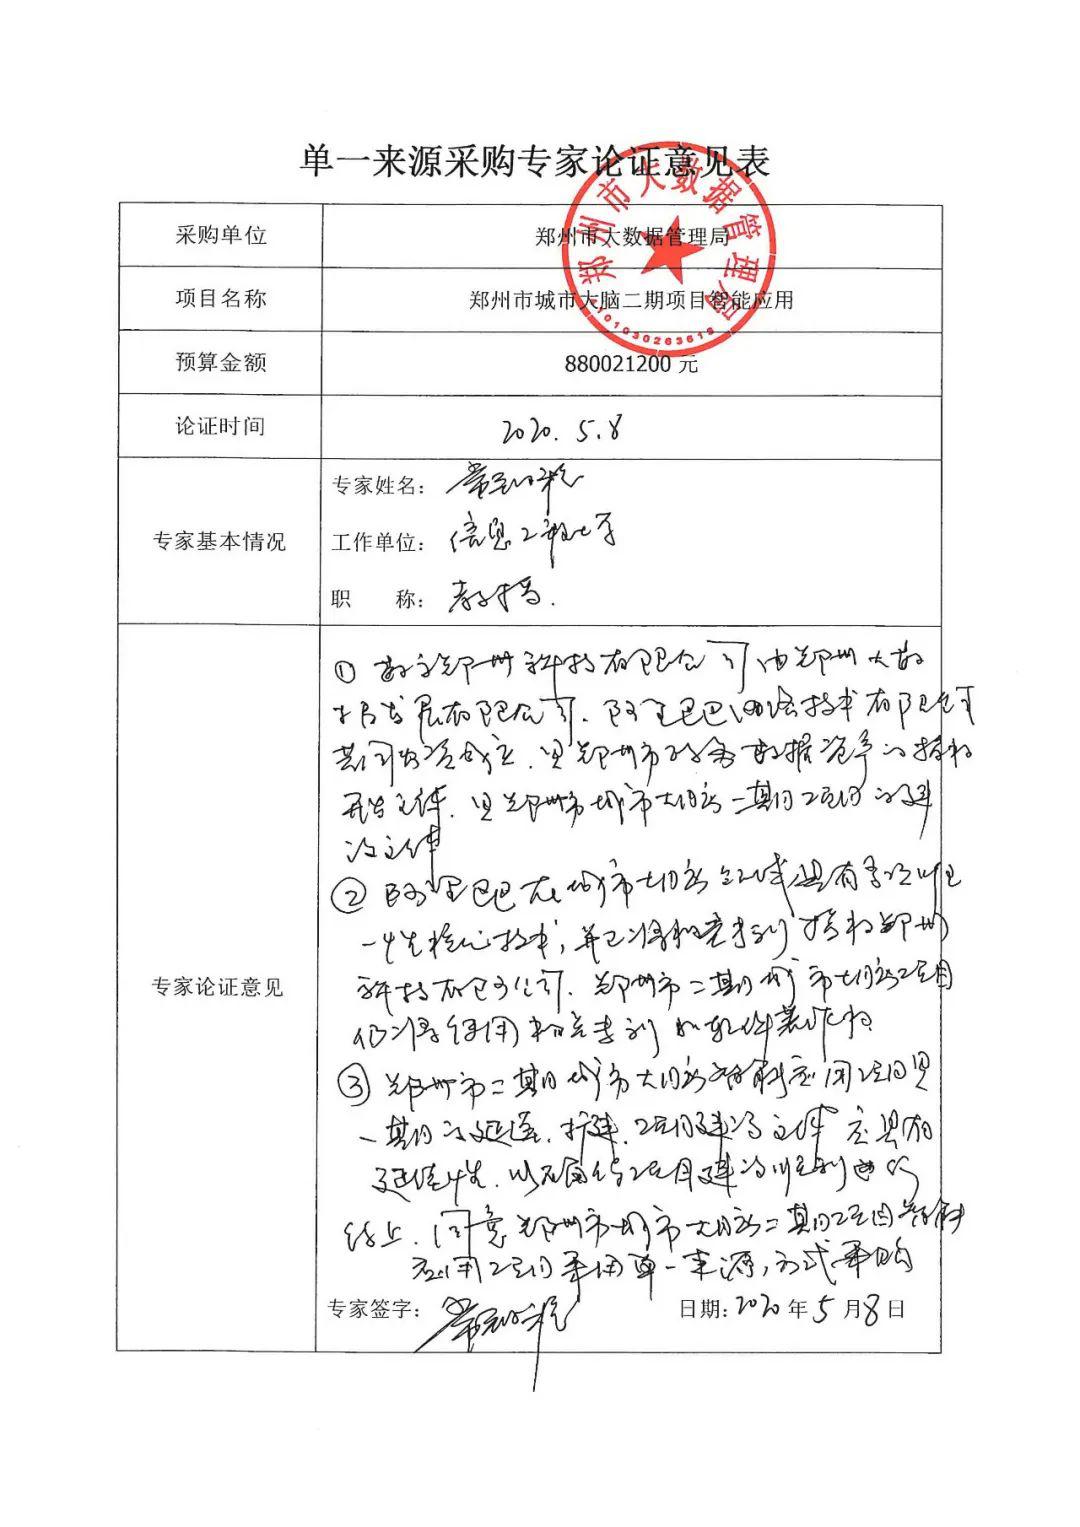 单一来源采购专家论证意见表
郑州市大数据管理局
4101030263618
采购单位 郑州市大数据管理局
项目名称 郑州市城市大脑二期项目智能应用
预算金额 880021200 元
论证时间 2020.5.8
专家基本情况
专家姓名:
工作单位: 信息工程大学
职 称: 教授.
专家论证意见
① 数字郑州科技有限公司由郑州大数
据发展有限公司、阿里巴巴网络技术有限公司
共同出资成立.是郑州市政务数据资产的授权
主体.是郑州市城市大脑一期项目的建
设主体
② 阿里巴巴在城市大脑领域具有
核心技术,并已将相关专利授权郑州
科技有限公司.郑州市二期城市大脑项目
仍将使用相关专利和软件著作权
③ 郑州市二期城市大脑智能应用项目是
一期的延续、扩建.项目建设主体应具有
延续性.以项目建设
综上.同意郑州市城市大脑二期项目智能
应用项目采用单一来源方式采购
专家签字: 日期:2020年5月8日